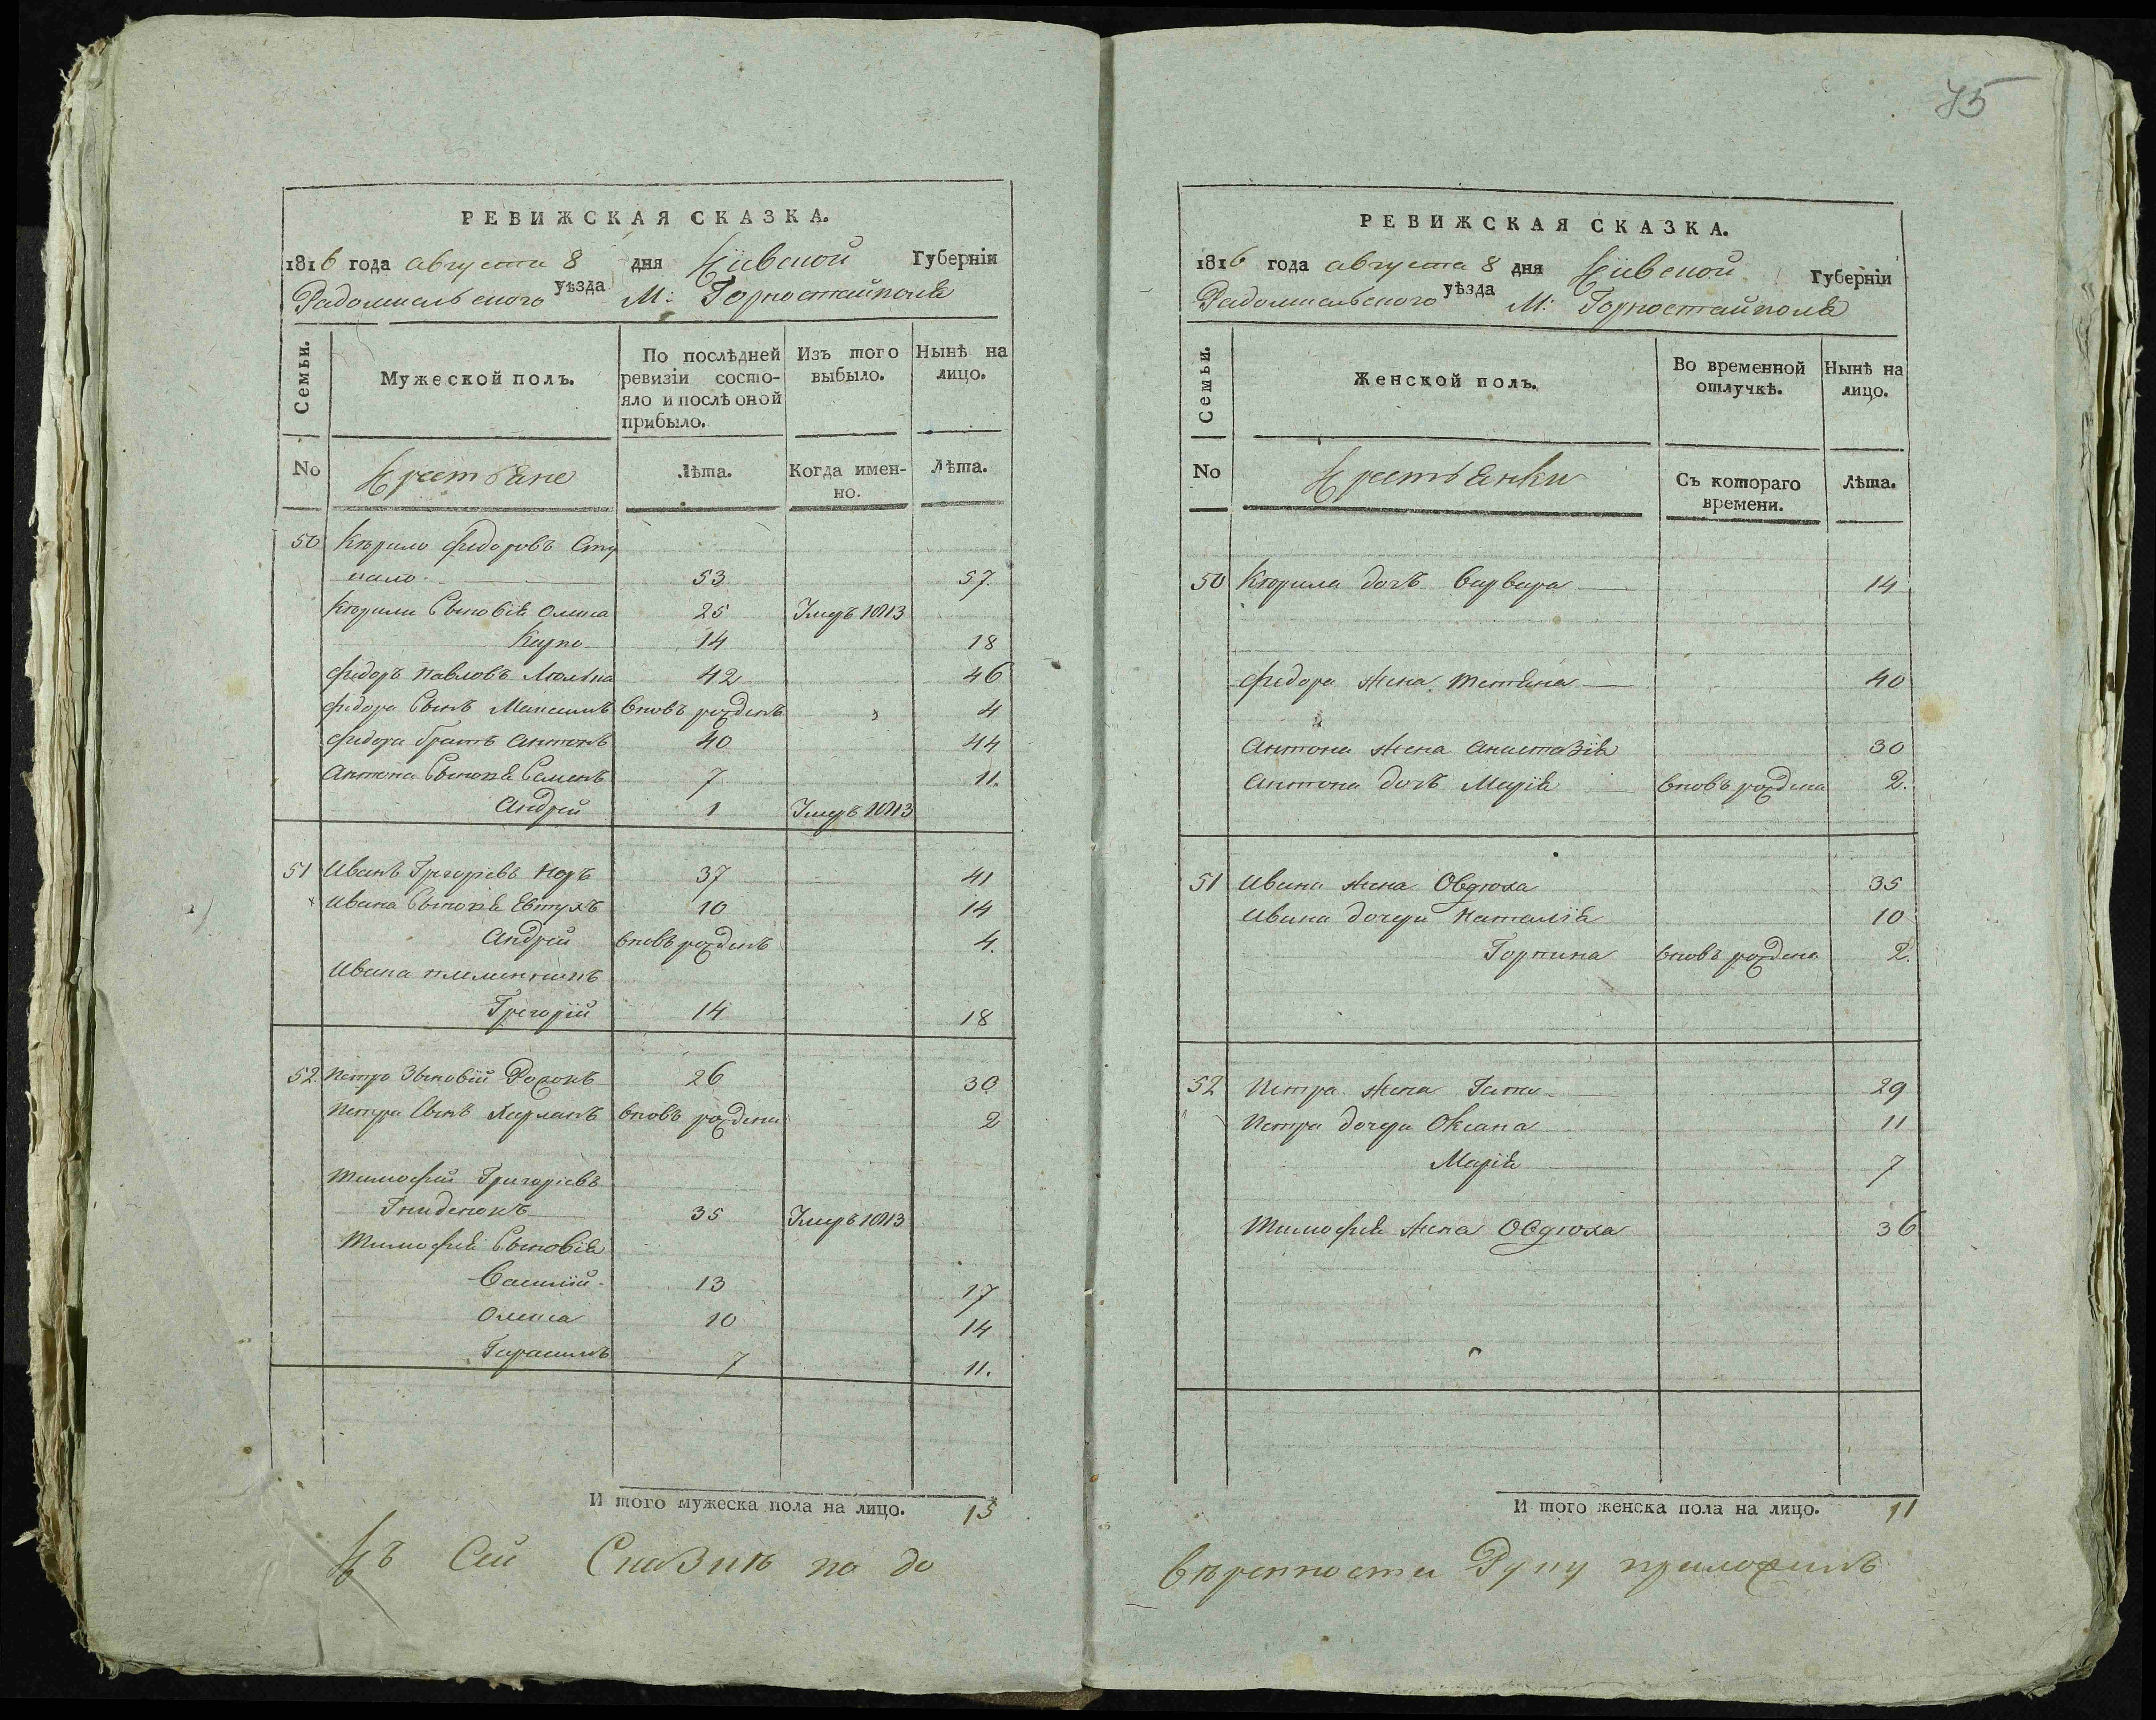 75
РЕВИЖСКАЯ СКАЗКА.
1816 года августа 8 дня Кіевской Губерніи
Радомысльского уѣзда М: Горностайполя
Семьи.
Мужеской полъ.
По послѣдней ревизіи состо-
яло и послѣ оной
прибыло.
Изъ того выбыло.
Нынѣ на лицо.
No
Крестьяне
Лѣта.
Когда имен-
но.
Лѣта.
50 Кирило Федоровъ Сту
пало 53 57
Кирили Сыновія Олекса 25 Умеръ 1813
Карпо 14 18
Федоръ Павловъ Люлька 42 46
Федора Сынъ Максимъ вновь рожденъ 4
Федора братъ Антонъ 40 44
Антона Сыновя Семенъ 7 11.
Андрей 1 Умеръ 1813
51 Иванъ Григоріевъ 37 41
Ивана Сыновя Евтухъ 10 14
Андрей вновь рожденъ 4.
Ивана племенникъ
Григорій 14 18
52. Петръ 26 30
Петра Сынъ Харланъ вновь рожденъ 2
Тимофей Григоріевъ
Гниденокъ 35 Умеръ 1813
Тимофея Сыновія
Василій 13 17
Олекса 10 14
Гарасимъ 7 11.
И того мужеска пола на лицо. 15
Къ Сей Сказкѣ по до
РЕВИЖСКАЯ СКАЗКА.
1816 года августа 8 дня Кіевской Губерніи
Радомысльского уѣзда М: Горностайполя
Семьи.
Женской полъ.
Во временной
отлучкѣ.
Нынѣ на
лицо.
No
Крестьянки
Съ котораго
времени.
Лѣта.
50 Кирила дочь Варвара 14
Федора жена Тетяна 40
Антона жена Анастазія 30
Антона дочь Марія вновь рождена 2.
51 Ивана жена Овдюха 35
Ивана дочери Наталія 10
Горпина вновь рождена 2.
52 Петра жена Гапа 29
Петра дочери Оксана 11
Марія 7
Тимофея жена Овдюха 36
И того женска пола на лицо. 11
вѣренности Руку приложилъ